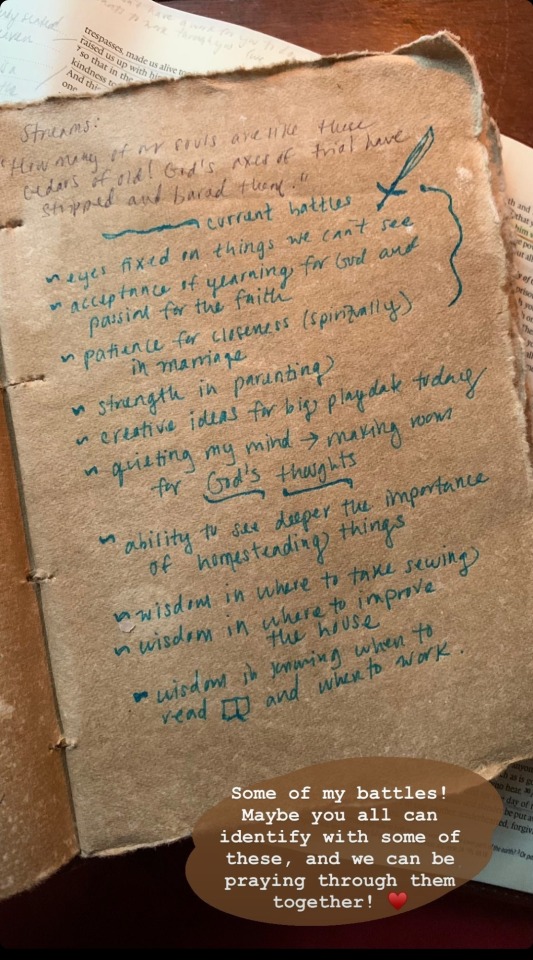 trespasses, made us alive to
raised us up with him
so that in the
kindness to
And this
one
Streams:
"How many of our souls are like these
cedars of old! God's axes of trial have
stripped and bared them."
current battles
~ eyes fixed on things we can't see
~ acceptance of yearning for God and
passion for the faith
~ patience for closeness (spiritually)
in marriage
~ strength in parenting
~ creative ideas for big playdate today
~ quieting my mind → making room
for God's thoughts
~ ability to see deeper the importance
of homesteading things
~ wisdom in where to take sewing
~ wisdom in where to improve
the house
~ wisdom in knowing when to
read and when to work.
Some of my battles!
Maybe you all can
identify with some of
these, and we can be
praying through them
together! ♥️